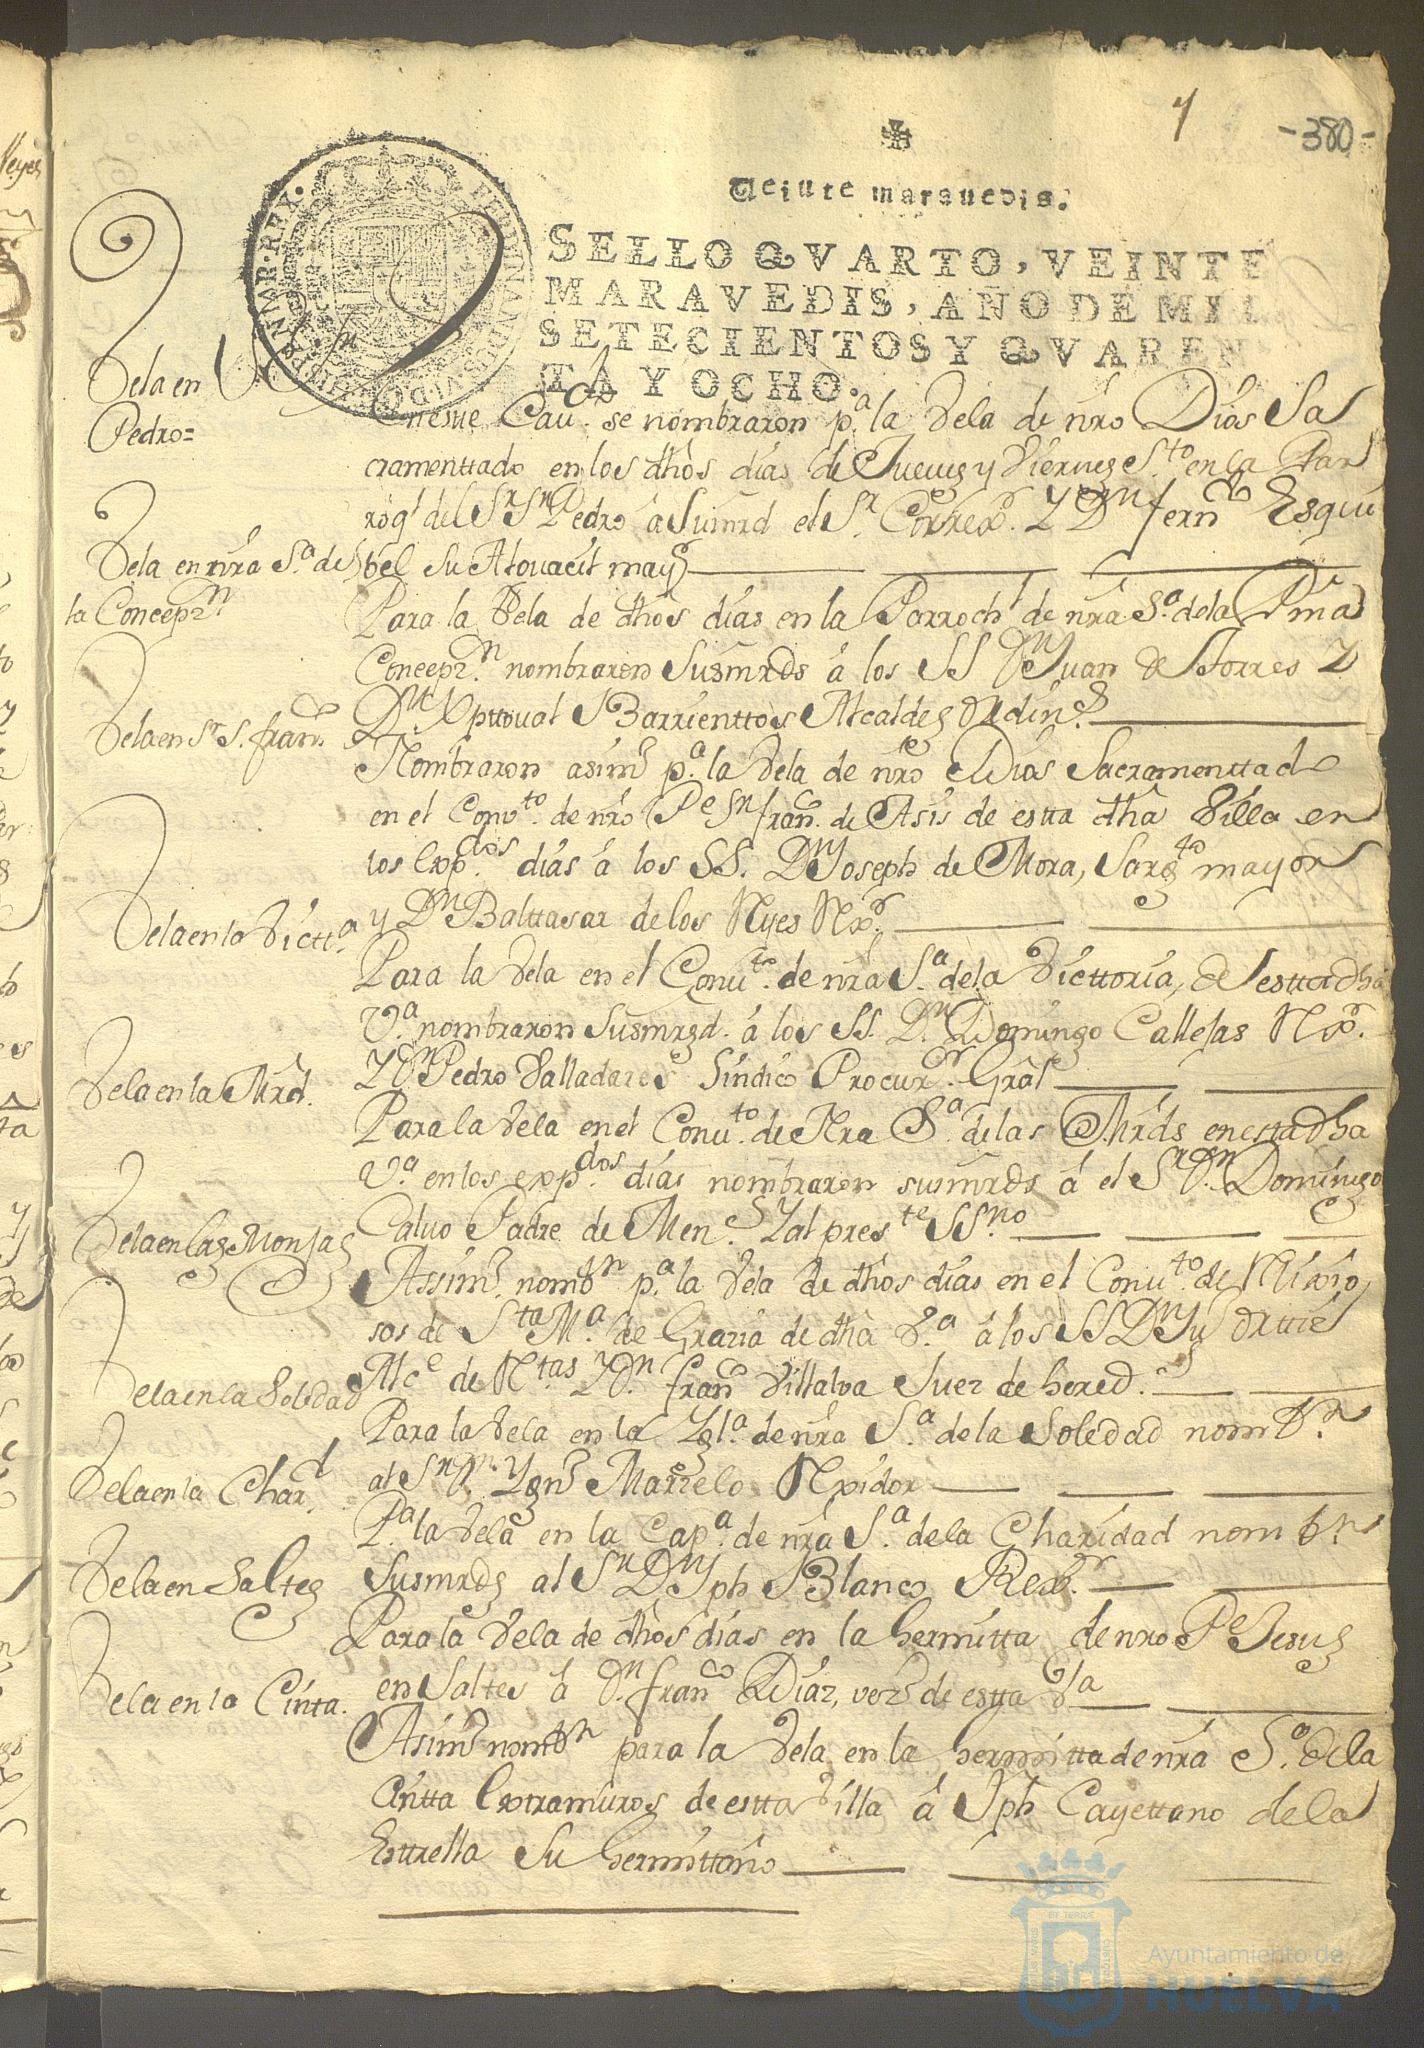 7
-380-
Veinte maravedis.
SELLO QVARTO, VEINTE
MARAVEDIS, AÑO DE MIL
SETECIENTOS Y QVAREN
TA Y OCHO.
Vela en Sn
Pedro=
En este Cavdo se nombraron pa. la Vela de nro Dios Sa
cramenttado en los dhos dias de Jueves y Viernes Sto en la Par
roql del Sr Sn Pedro á Sumrd el Sr Correxor. Y Dn fernco Esqui
bel su Alguacil mayor
Vela en nra Sa. de
la Concepzn
Para la Vela de dhos dias en la Parrochl de nra Sa. de la Pma
Concepzn. nombraron Susmrds á los SS Dn Juan de Torres Y
Dn Xpttoval Barrienttos Alcaldes Ordins.
Vela en Sr S. franco
Nombraron asimo pa. la Vela de nro Dios Sacramenttado
en el Convto. de nro Pe Sn franco. de Asis de estta dha Villa en
los Expdos dias á los SS. Dn Joseph de Mora, Sargto mayor
y Dn Balttasar de los Ryes Rxor.
Vela en la Victta
Para la Vela en el Convto. de nra Sa. de la Victtoria, de estta dha
Va. nombraron Susmrsd. á los SS. Dn Domingo Callejas Rxor.
Y Dn Pedro Valladares Sindico Procuror. Gral
Vela en la Mrd.
Para la Vela en el Convto. de Nra Sa. de las Mrds en esta dha
Va. en los expdos. dias nombraron susmrds á el Sr Dn Domingo
Calvo Padre de Mens. Y al preste SSno
Vela en las Monjas
Assimo. nombn pa. la Vela de dhos dias en el Convto de Relixio
sos de Sta Ma. de Grazia de dha Va. á los SS Dn Ju
Alce de Rtas Y Dn. franco Villalva Juez de hereds.
Vela en la Soledad
Para la Vela en la Ygla. de nra Sa. de la Soledad nombn.
al Sr Dn. Ygno Marzelo Rxidor
Vela en la Chard.
Pa. la Vela en la Capa. de nra Sa. de la Charidad nombrn
Susmrds al Sr Dn Jph Blanco Rexor.
Vela en Saltes
Para la Vela de dhos dias en la hermitta de nro Pe Jesus
en Saltes á Dn. franco Diaz, vezo de estta Va
Vela en la Cinta.
Asimo nombn para la Vela en la hermitta de nra Sa. de la
Cintta Extramuros de estta Villa á Jph Cayettano de la
Esttrella su hermittaño
Ayuntamiento de
HUELVA